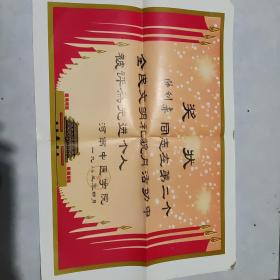 奖状
同志在第二个
全民文明礼貌月活动中
被评为先进个人
河南中医学院
一九八三年四月